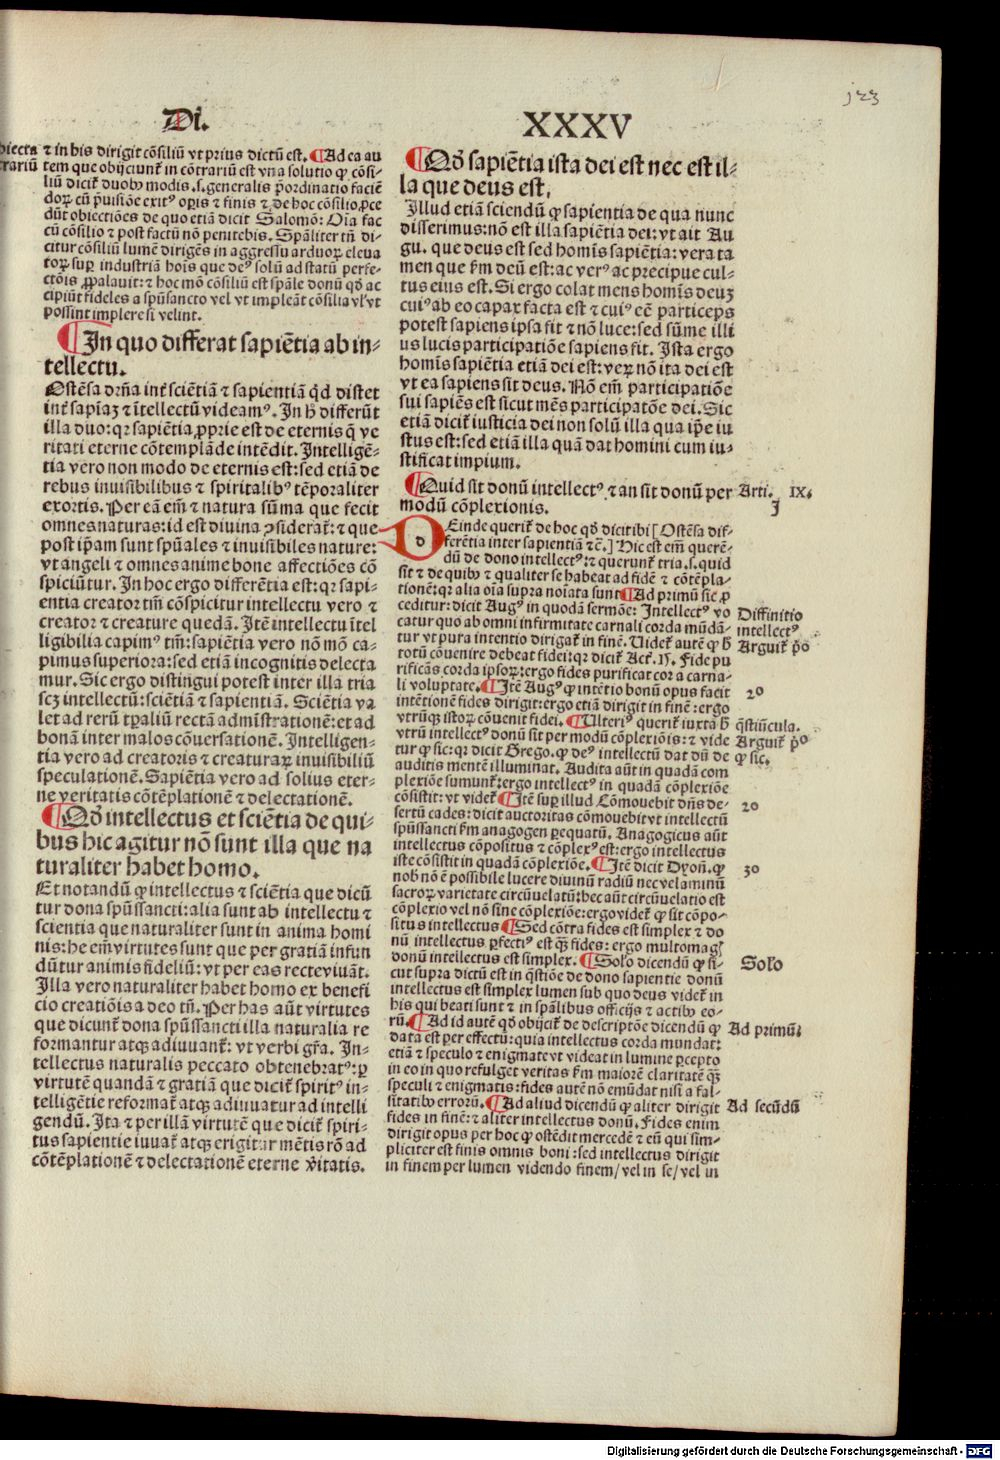 123
Di.
XXXV
⁊ in his dirigit cõsiliũ vt prius dictũ est. ¶Ad ea au
tem que obijciunt᷑ in cõtrariũ est vna solutio ꝙ cõsi-
liũ dicit᷑ duobꝰ modis .s. generalis p̃ordinatio faciẽ
doꝝ cũ p̃uisiõe exitꝰ oꝑis ⁊ finis ⁊ de hoc cõsilio ꝓce
dũt obiectiões de quo etiã dicit Salomõ: Oĩa fac
cũ cõsilio ⁊ post factũ nõ penitebis. Spãliter tñ di-
citur cõsiliũ lumẽ dirigẽs in aggressu arduoꝝ eleua
toꝝ suꝑ industriã hoĩs que deꝰ solũ ad statũ perfe-
ctõis ꝓpalauit: ⁊ hoc mõ cõsiliũ est spãle donũ qḋ ac
cipiũt fideles a spũsancto vel vt impleãt cõsilia vl̓ vt
possint implere si velint.
¶In quo differat sapiẽtia ab in-
tellectu.
Ostẽsa dr̃ña int᷑ sciẽtiã ⁊ sapientiã qḋ distet
int᷑ sapĩaꝫ ⁊ ĩtellectũ videamꝰ. In h̓ differũt
illa duo: qꝛ sapiẽtia ꝓprie est de eternis q̃ ve
ritati eterne cõtemplãde intẽdit. Intelligẽ-
tia vero non modo de eternis est: sed etiã de
rebus inuisibilibus ⁊ spiritalibꝰ tẽporaliter
exortis. Per eã em̃ ⁊ natura sũma que fecit
omnes naturas: id est diuina ꝯsiderat᷑: ⁊ que
post ip̃am sunt spũales ⁊ inuisibiles nature:
vt angeli ⁊ omnes anime bone affectiões cõ
spiciũtur. In hoc ergo differẽtia est: qꝛ sapi-
entia creator tm̃ cõspicitur intellectu vero ⁊
creator ⁊ creature quedã. Itẽ intellectu ĩtel
ligibilia capimꝰ tm̃: sapiẽtia vero nõ mõ ca-
pimus superiora: sed etiã incognitis delecta
mur. Sic ergo distingui potest inter illa tria
scꝫ intellectũ: sciẽtiã ⁊ sapientiã. Sciẽtia va
let ad rerũ tꝑaliũ rectã admĩstrationẽ: et ad
bonã inter malos cõuersationẽ. Intelligen-
tia vero ad creatoris ⁊ creaturaꝝ inuisibiliũ
speculationẽ. Sapiẽtia vero ad solius eter-
ne veritatis cõtẽplationẽ ⁊ delectationẽ.
¶Qḋ intellectus et sciẽtia de qui-
bus hic agitur nõ sunt illa que na
turaliter habet homo.
Et notandũ ꝙ intellectus ⁊ sciẽtia que dicũ
tur dona spũssancti: alia sunt ab intellectu ⁊
scientia que naturaliter sunt in anima homi
nis: he em̃ virtutes sunt que per gratiã infun
dũtur animis fideliũ: vt per eas recte viuãt.
Illa vero naturaliter habet homo ex benefi
cio creatiõis a deo tñ. Per has aũt virtutes
que dicunt᷑ dona spũssancti illa naturalia re
formantur atqꝫ adiuuant᷑: vt verbi gr̃a. In-
tellectus naturalis peccato obtenebratꝰ: ꝑ
virtutẽ quandã ⁊ gratiã que dicit᷑ spiritꝰ in-
telligẽtie reformat᷑ atqꝫ adiuuatur ad intelli
gendũ. Ita ⁊ per illã virtutẽ que dicit᷑ spiri-
tus sapientie iuuat᷑ atqꝫ erigitur mẽtis rõ ad
cõtẽplationẽ ⁊ delectationẽ eterne v̓itatis.
¶Qḋ sapiẽtia ista dei est nec est il-
la que deus est.
Illud etiã sciendũ ꝙ sapientia de qua nunc
disserimus: nõ est illa sapiẽtia dei: vt ait Au
gu. que deus est sed homĩs sapiẽtia: vera ta
men que ẜm deũ est: ac verꝰ ac precipue cul-
tus eius est. Si ergo colat mens homĩs deuꝫ
cuiꝰ ab eo capax facta est ⁊ cuiꝰ eẽ particeps
potest sapiens ipsa fit ⁊ nõ luce: sed sũme illi
us lucis participatiõe sapiens fit. Ista ergo
homĩs sapiẽtia etiã dei est: veꝝ nõ ita dei est
vt ea sapiens sit deus. Nõ em̃ participatiõe
sui sapiẽs est sicut mẽs participatõe dei. Sic
etiã dicit᷑ iusticia dei non solũ illa qua ip̃e iu
stus est: sed etiã illa quã dat homini cum iu-
stificat impium.
¶Quid sit donũ intellectꝰ ⁊ an sit donũ per
modũ cõplexionis.
Arti. IX.
J
DEinde querit᷑ de hoc qḋ dicit ibi [Ostẽsa dif-
ferẽtia inter sapientiã ⁊c̃.] Hic est em̃ querẽ-
dũ de dono intellectꝰ: ⁊ querunt᷑ tria .s. quid
sit ⁊ de quibꝰ ⁊ qualiter se habeat ad fidẽ ⁊ cõtẽpla-
tionẽ: qꝛ alia oĩa supra noĩata sunt ¶Ad primũ sic ꝓ
ceditur: dicit Augꝰ in quodã sermõe: Intellectꝰ vo
catur quo ab omni infirmitate carnali corda mũdã-
tur vt pura intentio dirigat᷑ in finẽ. Uidet᷑ autẽ ꝙ h̓
totũ cõuenire debeat fidei: qꝛ dicit᷑ Act᷑. 15. Fide pu
rificãs corda ipsoꝝ: ergo fides purificat cor a carna-
li voluptate. ¶Itẽ Augꝰ ꝙ intẽtio bonũ opus facit
intẽtionẽ fides dirigit: ergo etiã dirigit in finẽ: ergo
vtrũqꝫ istoꝝ cõuenit fidei. ¶Ulteriꝰ querit᷑ iuxta h̓
vtrũ intellectꝰ donũ sit per modũ cõplexiõis: ⁊ vide
tur ꝙ sic: qꝛ dicit Grego. ꝙ deꝰ intellectũ dat dũ de
auditis mentẽ illuminat. Audita aũt in quadã com
plexiõe sumunt᷑: ergo intellectꝰ in quadã cõplexiõe
cõsistit: vt videt᷑ ¶Itẽ suꝑ illud Cõmouebit dñs de-
sertũ cades: dicit auctoritas cõmouebit vt intellectũ
spũssancti ẜm anagogen ꝑequatũ. Anagogicus aũt
intellectus cõpositus ⁊ cõplexꝰ est: ergo intellectus
iste cõsistit in quadã cõplexiõe. ¶Itẽ dicit Dyoñ. ꝙ
nobꝰ nõ ẽ possibile lucere diuinũ radiũ nec velaminũ
sacroꝝ varietate circũuelatũ: hec aũt circũuelatio est
cõplexio vel nõ sine cõplexiõe: ergo videt᷑ ꝙ sit cõpo-
situs intellectus ¶Sed cõtra fides est simplex ⁊ do
nũ intellectus ꝑfectiꝰ est qꝫ fides: ergo multomagꝭ
donũ intellectus est simplex. ¶Solo dicendũ ꝙ si-
cut supra dictũ est in q̃stiõe de dono sapientie donũ
intellectus est simplex lumen sub quo deus videt᷑ in
his qui beati sunt ⁊ in spãlibus officijs ⁊ actibꝰ eo-
rũ. ¶Ad id autẽ qḋ obijcit᷑ de descriptõe dicendũ ꝙ
data est per effectũ: quia intellectus corda mundat:
etiã ⁊ speculo ⁊ enigmate vt videat in lumine ꝑcepto
in eo in quo refulget veritas ẜm maiorẽ claritatẽ qꝫ
speculi ⁊ enigmatis: fides autẽ nõ emũdat nisi a fal-
sitatibꝰ errorũ. ¶Ad aliud dicendũ ꝙ aliter dirigit
fides in finẽ: ⁊ aliter intellectus donũ. Fides enim
dirigit opus per hoc ꝙ ostẽdit mercedẽ ⁊ eũ qui sim-
pliciter est finis omnis boni: sed intellectus dirigit
in finem per lumen videndo finem/ vel in se/ vel in
Diffinitio
intellectꝰ
Arguit᷑ p̃o
2o
q̃stiũcula.
Arguit᷑ p̃o
ꝙ sic.
2o
3o
Solo
Ad primũ:
Ad secũdũ
Digitalisierung gefördert durch die Deutsche Forschungsgemeinschaft - DFG